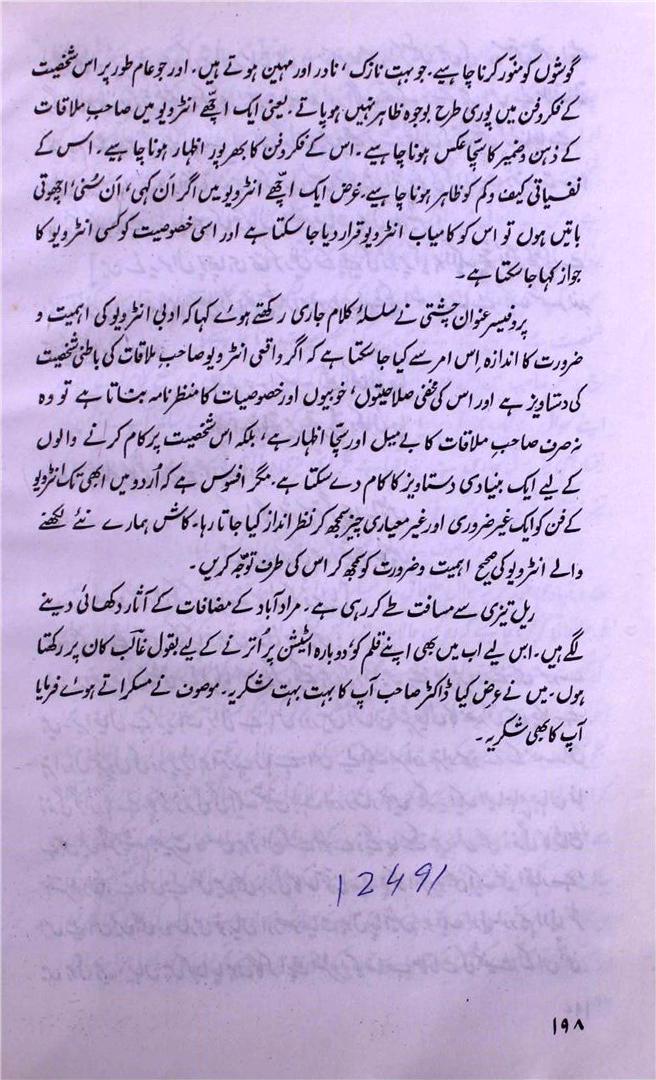 گوشوں کو منوّر کرنا چاہیے۔ جو بہت نازک، نادر اور مہین ہوتے ہیں۔ اور جو عام طور پر اس شخصیت
کے فکر و فن میں پوری طرح بوجوہ ظاہر نہیں ہو پاتے۔ یعنی ایک اچھّے انٹرویو میں صاحبِ ملاقات
کے ذہن و ضمیر کا سچّا عکس ہونا چاہیے۔ اس کے فکر و فن کا بھرپور اظہار ہونا چاہیے۔ اس کے
نفسیاتی کیف و کم کو ظاہر ہونا چاہیے۔ غرض ایک اچھّے انٹرویو میں اگر اَن کہی، اَن سُنی، اچھوتی
باتیں ہوں تو اس کو کامیاب انٹرویو قرار دیا جا سکتا ہے اور اسی خصوصیت کو کسی انٹرویو کا
جواز کہا جا سکتا ہے۔
پروفیسر عنوان چشتی نے سلسلۂ کلام جاری رکھتے ہوئے کہا کہ ادبی انٹرویو کی اہمیت و
ضرورت کا اندازہ اس امر سے کیا جا سکتا ہے کہ اگر واقعی انٹرویو صاحبِ ملاقات کی باطنی شخصیت
کی دستاویز ہے اور اس کی مخفی صلاحیتوں، خوبیوں اور خصوصیات کا منظر نامہ بناتا ہے تو وہ
نہ صرف صاحبِ ملاقات کا بے میل اور سچّا اظہار ہے، بلکہ اس شخصیت پر کام کرنے والوں
کے لیے ایک بنیادی دستاویز کا کام دے سکتا ہے۔ مگر افسوس ہے کہ اُردو میں ابھی تک انٹرویو
کے فن کو ایک غیر ضروری اور غیر معیاری چیز سمجھ کر نظر انداز کیا جاتا رہا۔ کاش ہمارے نئے لکھنے
والے انٹرویو کی صحیح اہمیت و ضرورت کو سمجھ کر اس کی طرف توجّہ کریں۔
ریل تیزی سے مسافت طے کر رہی ہے۔ مراد آباد کے مضافات کے آثار دکھائی دینے
لگے ہیں۔ اس لیے اب میں بھی اپنے قلم کو دوبارہ اسٹیشن پر اترنے کے لیے بقول غالبؔ کان پر رکھتا
ہوں۔ میں نے عرض کیا ڈاکٹر صاحب آپ کا بہت بہت شکریہ۔ موصوف نے مسکراتے ہوئے فرمایا
آپ کا بھی شکریہ۔
12491
۱۹۸